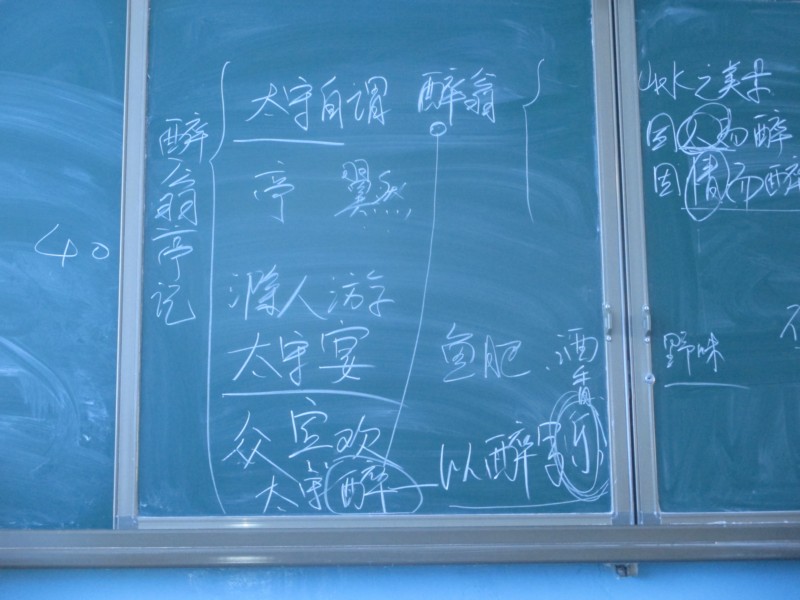 40
醉翁亭记
太守自谓 醉翁
亭 翼然
滁人游
太守宴 鱼肥 酒香
众宾欢
太守醉 以醉写
山水之美
因人而醉
因情而醉
野味